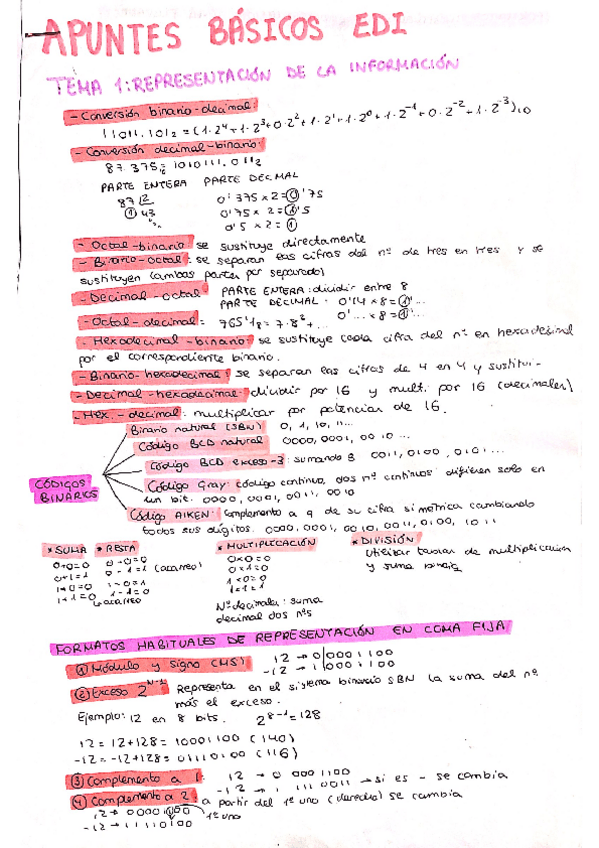 APUNTES BÁSICOS EDI
TEMA 1: REPRESENTACIÓN DE LA INFORMACIÓN
- Conversión binario-decimal:
11011,101₂ = (1·2⁴+1·2³+0·2²+1·2¹+1·2⁰+1·2⁻¹+0·2⁻²+1·2⁻³)₁₀
- Conversión decimal-binario:
87 375 = 1010111,011₂
PARTE ENTERA PARTE DECIMAL
87 |2 0'375 x 2 = 0'75
1 43 0'75 x 2 = 1'5
0'5 x 2 = 1
- Octal-binario: se sustituye directamente
- Binario-octal: se separan las cifras del nº de tres en tres y se
sustituyen (ambas partes por separado)
- Decimal-octal: PARTE ENTERA: dividir entre 8
PARTE DECIMAL: 0'14 x 8 = 1'...
0'... x 8 = 1'...
- Octal-decimal: 765'1₈ = 7·8²+...
- Hexadecimal-binario: se sustituye cada cifra del nº en hexadecimal
por el correspondiente binario.
- Binario-hexadecimal: se separan las cifras de 4 en 4 y sustitui-
- Decimal-hexadecimal: dividir por 16 y mult. por 16 (decimales)
- Hex.-decimal: multiplicar por potencias de 16.
CÓDIGOS BINARIOS
Binario natural (SBN) 0, 1, 10, 11...
Código BCD natural 0000, 0001, 0010...
Código BCD exceso-3: sumando 3 0011, 0100, 0101...
Código Gray: código continuo, dos nº continuos difieren solo en
un bit. 0000, 0001, 0011, 0010
Código AIKEN: complemento a 9 de su cifra simétrica cambiando
todos sus dígitos. 0000, 0001, 0010, 0011, 0100, 1011
* SUMA * RESTA * MULTIPLICACIÓN * DIVISIÓN
0+0=0 0-0=0 0x0=0 Utilizar tablas de multiplicación
0+1=1 0-1=1 (acarreo) 0x1=0 y suma binaria
1+0=0 1-0=1 1x0=0
1+1=0 1-1=0 1x1=1
acarreo
Nº decimales: suma
decimal dos nºs
FORMATOS HABITUALES DE REPRESENTACIÓN EN COMA FIJA
① Módulo y Signo (MS) 12 → 0|0001100
-12 → 1|0001100
② Exceso 2ᴺ⁻¹ Representa en el sistema binario SBN la suma del nº
más el exceso.
Ejemplo: 12 en 8 bits. 2⁸⁻¹=128
12 = 12+128 = 10001100 (140)
-12 = -12+128 = 01110100 (116)
③ Complemento a 1: 12 → 0 0001100
-12 → 1 1110011 → si es - se cambia
④ Complemento a 2: a partir del 1º uno (derecha) se cambia
12 → 00001100 1º uno
-12 → 11110100